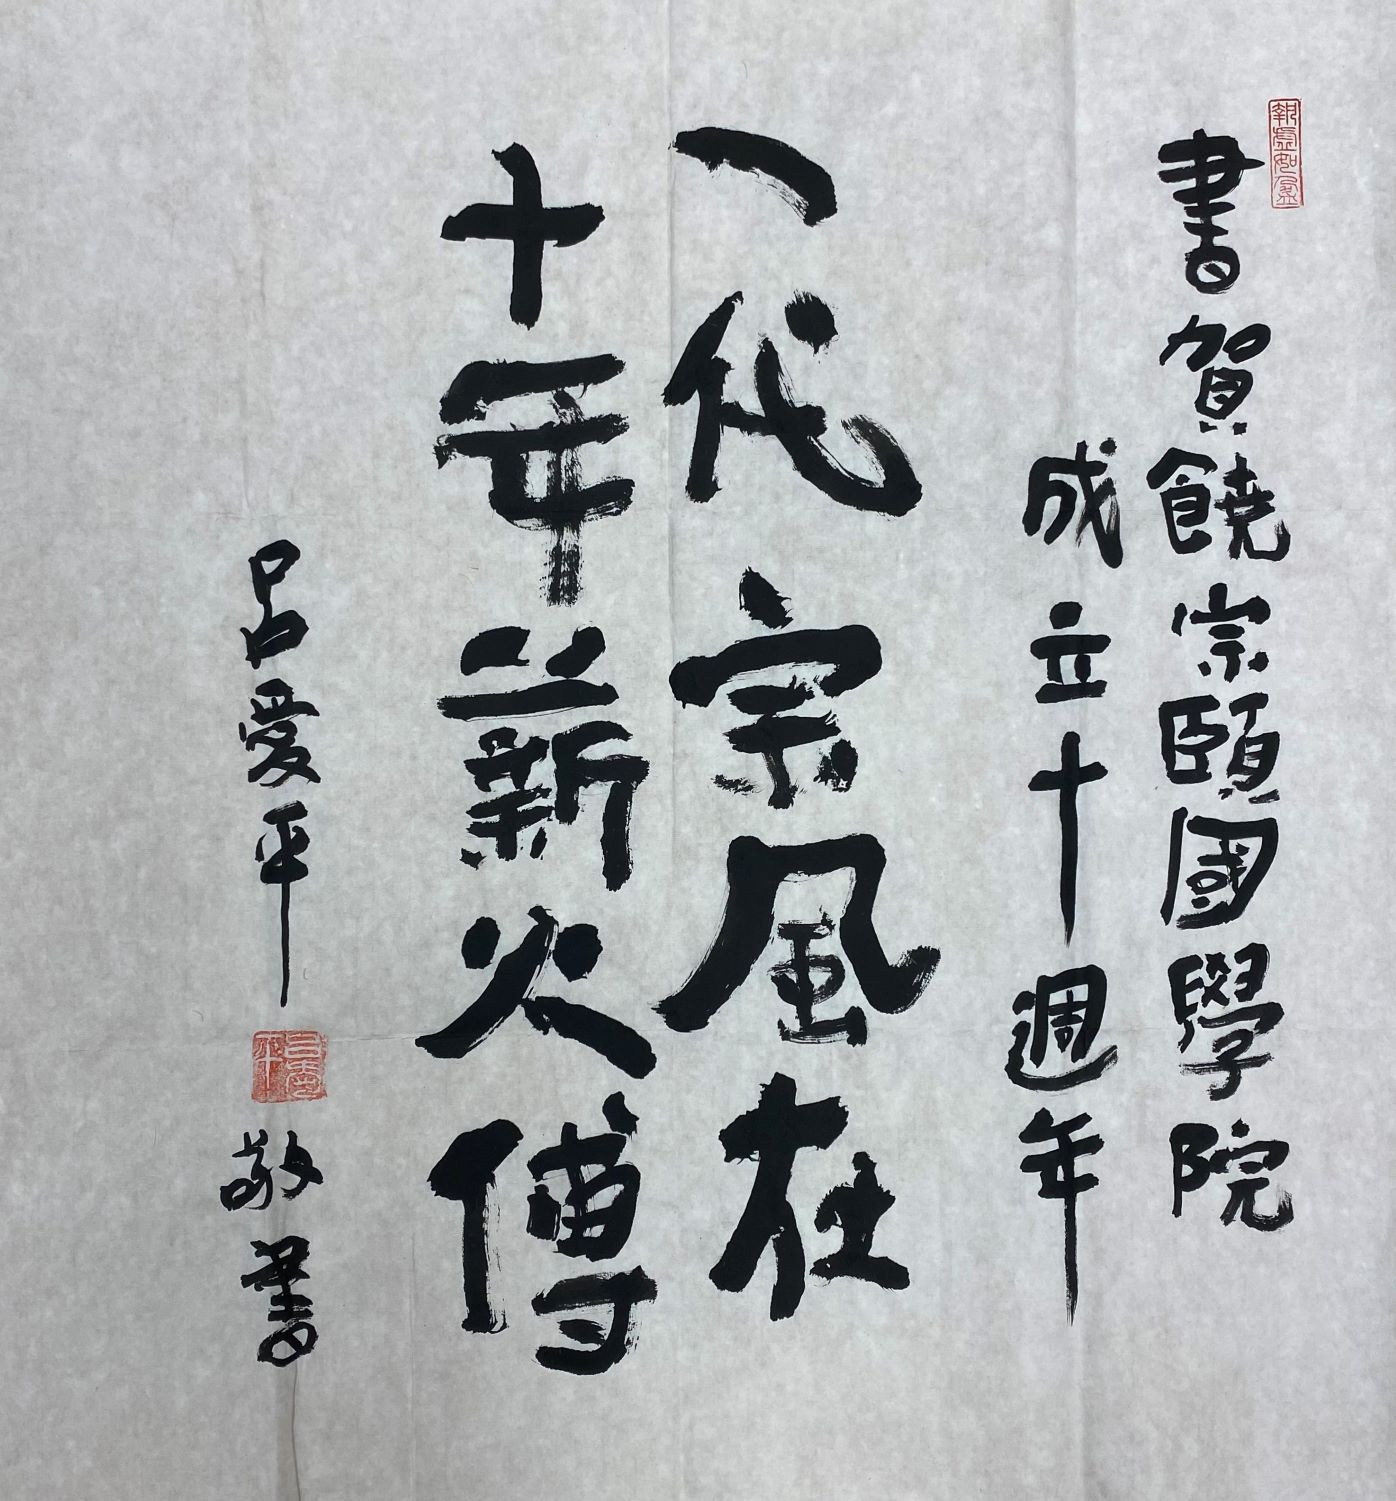 書賀饒宗頤國學院
成立十週年
一代宗風在
十年薪火傳
呂愛平
敬書
執虛如盈
呂愛平